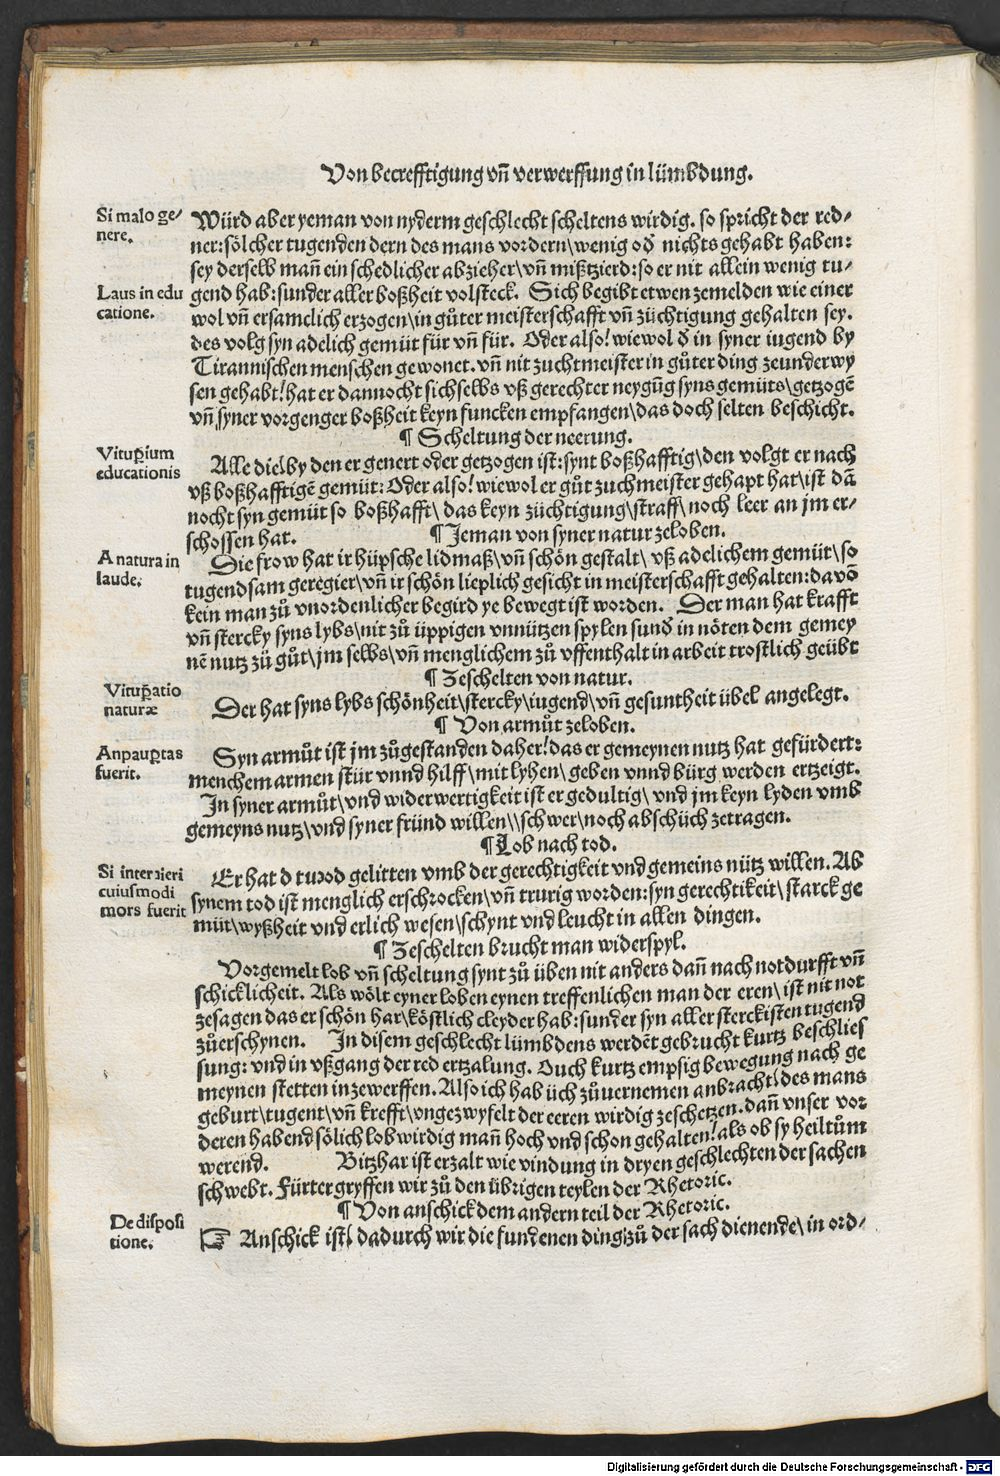 Von becrefftigung vn̄ verwerffung in lümbdung.
Si malo ge⸗
nere.
Würd aber yeman von nyderm geschlecht scheltens wirdig. so spricht der red⸗
ner: sölcher tugenden dern des mans vordern\ wenig od̄ nichts gehabt haben:
sey derselb man̄ ein schedlicher abzieher\ vn̄ mißtzierd: so er nit allein wenig tu⸗
Laus in edu
catione.
gend hab: sunder aller boßheit volsteck. Sich begibt etwen zemelden wie einer
wol vn̄ ersamclich erzogen\ in gůter meisterschafft vn̄ züchtigung gehalten sey.
des volg syn adelich gemüt für vn̄ für. Oder also! wiewol d̄ in syner iugend by
Tirannischen menschen gewonet. vn̄ nit zuchtmeister in gůter ding zeunderwy
sen gehabt! hat er dannocht sich selbs vß gerechter neygūg syns gemüts\ getzogē
vn̄ syner vorgenger boßheit keyn funcken empfangen\ das doch selten beschicht.
¶ Scheltung der neerung.
Vitup̄ium
educationis
Alle die\ by den er genert oder getzogen ist: synt boßhafftig\ den volgt er nach
vß boßhafftigē gemüt: Oder also! wiewol er gůt zuchmeister gehapt hat\ ist dā
nocht syn gemüt so boßhafft\ das keyn züchtigung\ straff\ noch leer an jm er⸗
schossen hat. ¶ Jeman von syner natur zeloben.
A natura in
laude.
Die frow hat ir hüpsche lidmaß\ vn̄ schön gestalt\ vß adelichem gemüt\ so
tugendsam geregier\ vn̄ ir schön lieplich gesicht in meisterschafft gehalten: da vō
kein man zů vnordenlicher begird ye bewegt ist worden. Der man hat krafft
vn̄ stercky syns lybs\ nit zů üppigen vnnützen spylen sund̄ in nöten dem gemey
nē nutz zů gůt\ jm selbs\ vn̄ menglichem zů vffenthalt in arbeit trostlich geübt
¶ Zeschelten von natur.
Vitup̄atio
naturæ
Der hat syns lybs schönheit\ stercky\ iugend\ vn̄ gesuntheit übel angelegt.
¶ Von armůt zeloben.
An paup̄tas
fuerit.
Syn armůt ist jm zůgestanden daher! das er gemeynen nutz hat gefürdert:
menchem armen stür vnnd hilff\ mit lyhen\ geben vnnd bürg werden ertzeigt.
In syner armůt\ vnd widerwertigkeit ist er gedultig\ vnd jm keyn lyden vmb
gemeyns nutz\ vnd syner fründ willen\\ schwer\ noch abschüch zetragen.
¶ Lob nach tod.
Si interieri
cuiusmodi
mors fuerit
Er hat d tuod gelitten vmb der gerechtigkeit vnd gemeins nütz willen. Ab
synem tod ist menglich erschrocken\ vn̄ trurig worden: syn gerechtikeit\ starck ge
müt\ wyßheit vnd erlich wesen\ schynt vnd leucht in allen dingen.
¶ Zeschelten brucht man widerspyl.
Vorgemelt lob vn̄ scheltung synt zů üben nit anders dan̄ nach notdurfft vn̄
schicklicheit. Als wölt eyner loben eynen treffenlichen man der eren\ ist nit not
zesagen das er schön har\ köstlich cleyder hab: sunder syn aller sterckisten tugend
zůerschynen. In disem geschlecht lümbdens werdēt gebrucht kurtz beschlies
sung: vnd in vßgang der red ertzalung. Ouch kurtz empsig bewegung nach ge
meynen stetten inzewerffen. Also ich hab üch zůuernemen anbracht\ des mans
geburt\ tugent\ vn̄ krefft\ vngezwyfelt der eeren wirdig zeschetzen. dan̄ vnser vor
deren habend sölich lobwirdig man̄ hoch vnd schon gehalten! als ob sy heiltům
werend. Bitzhar ist erzalt wie vindung in dryen geschlechten der sachen
schwebt. Fürter gryffen wir zů den übrigen teylen der Rhetoric.
¶ Von anschick dem andern teil der Rhetoric.
De disposi
tione.
☞ Anschick ist\ dadurch wir die fundenen ding\ zů der sach dienende\ in ord⸗
Digitalisierung gefördert durch die Deutsche Forschungsgemeinschaft - DFG